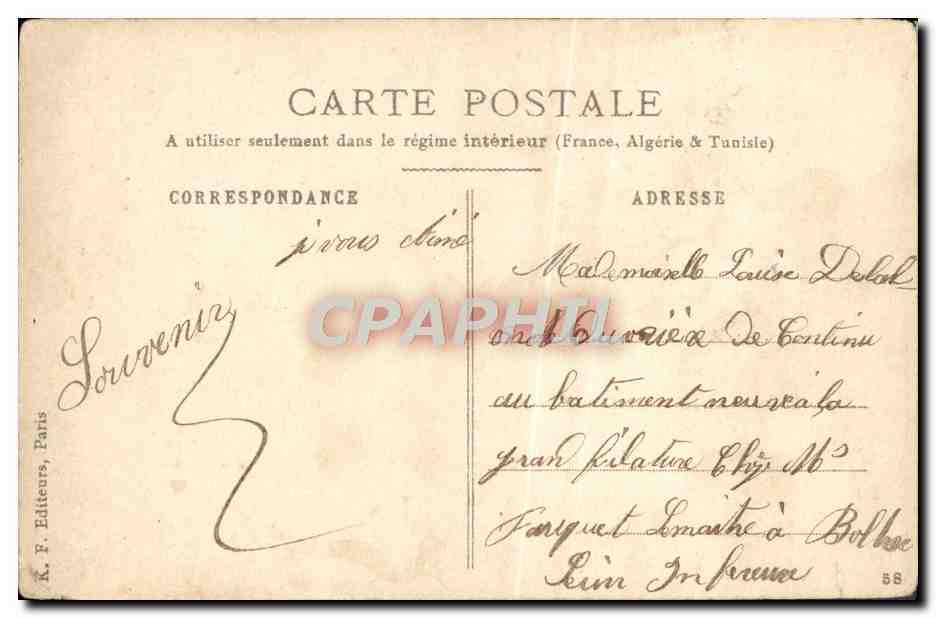 CARTE POSTALE
A utiliser seulement dans le régime intérieur (France, Algérie & Tunisie)
CORRESPONDANCE
ADRESSE
je vous Aimé
Souvenir
Mademoiselle Louise
ouvrière de Continu
au batiment neuve a la
gran filature Chez Ms
Fauquet Lemaitre à Bolbec
Sein Inferieure
K. F. Editeurs, Paris
58
CPAPHIL